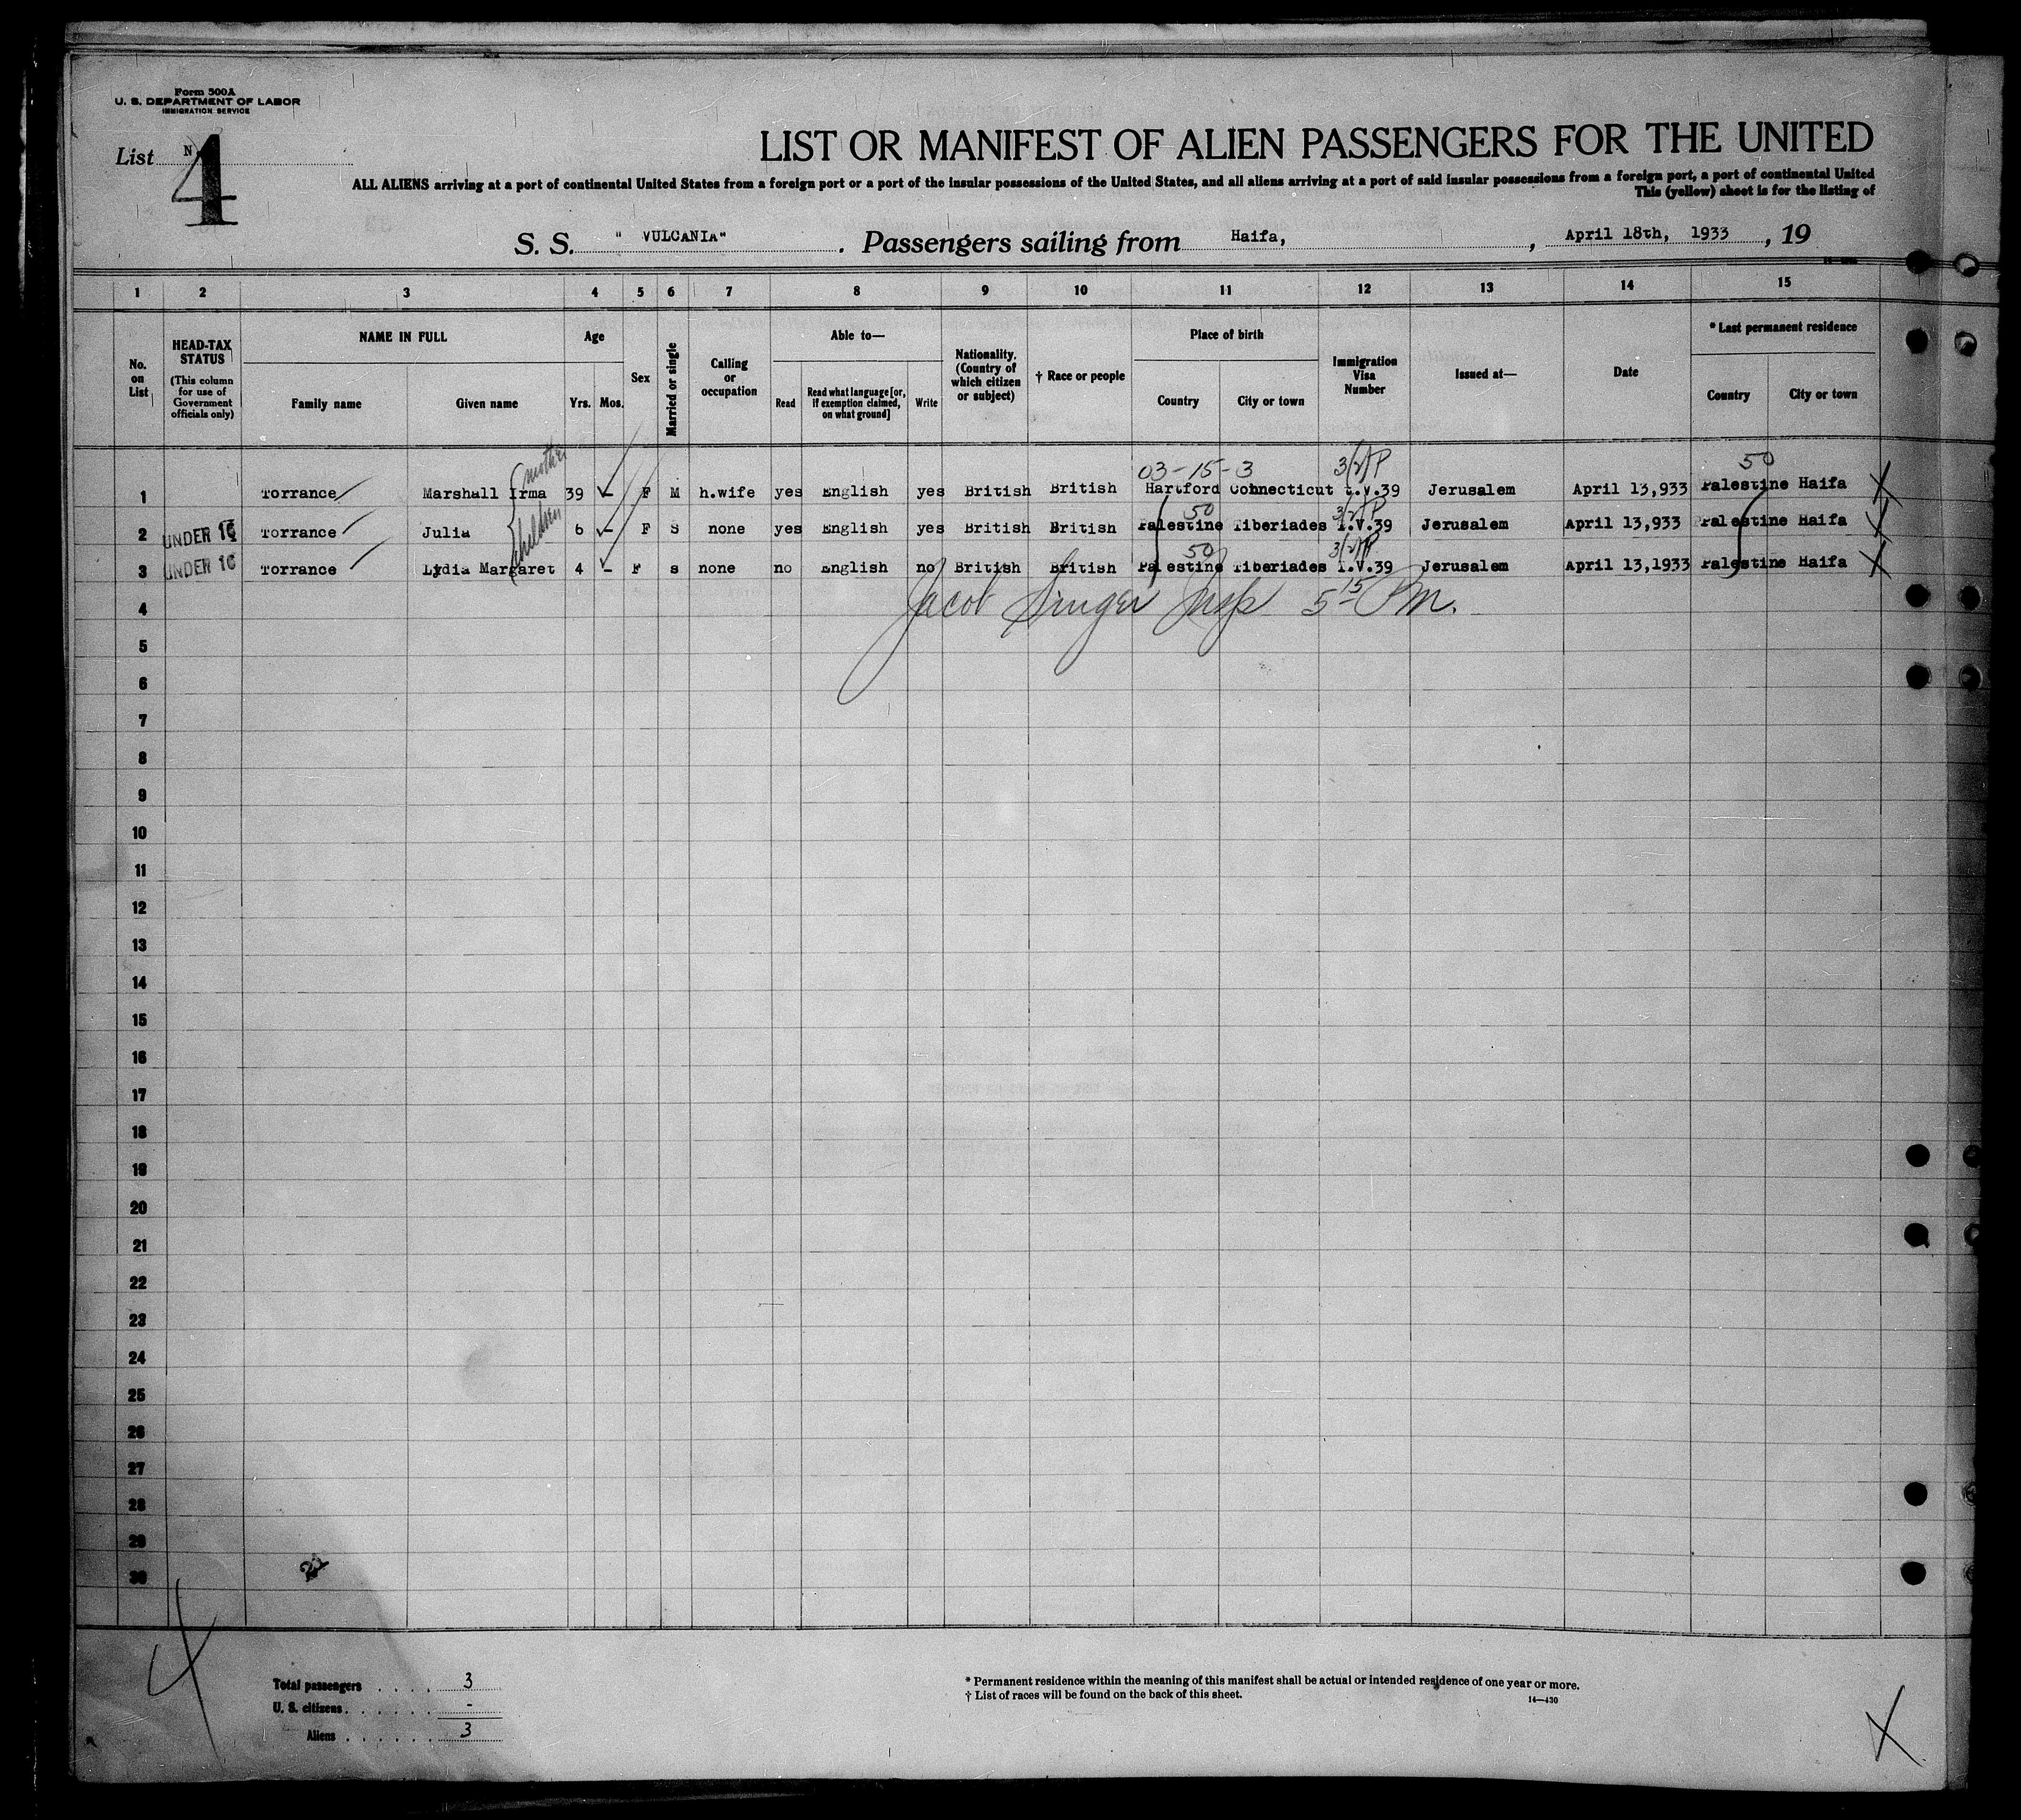 Form 500A
U. S. DEPARTMENT OF LABOR
IMMIGRATION SERVICE
List N 4
LIST OR MANIFEST OF ALIEN PASSENGERS FOR THE UNITED
ALL ALIENS arriving at a port of continental United States from a foreign port or a port of the insular possessions of the United States, and all aliens arriving at a port of said insular possessions from a foreign port, a port of continental United
This (yellow) sheet is for the listing of
S. S. " VULCANIA" . Passengers sailing from Haifa, , April 18th, 1933 , 19
1 2 3 4 5 6 7 8 9 10 11 12 13 14 15
No. on List
HEAD-TAX STATUS
(This column for use of Government officials only)
NAME IN FULL
Family name
Given name
Age
Yrs. Mos.
Sex
Married or single
Calling or occupation
Able to—
Read
Read what language [or, if exemption claimed, on what ground]
Write
Nationality. (Country of which citizen or subject)
† Race or people
Place of birth
Country
City or town
Immigration Visa Number
Issued at—
Date
* Last permanent residence
Country
City or town
mother
03-15-3
50
1 Torrance Marshall Irma 39 - F M h.wife yes English yes British British Hartford Connecticut I.V.39 Jerusalem April 13,933 Palestine Haifa X
children
50
2 UNDER 16 Torrance Julia 6 - F S none yes English yes British British Palestine Tiberiades I.V.39 Jerusalem April 13,933 Palestine Haifa X
50
3 UNDER 16 Torrance Lydia Margaret 4 - F s none no English no British British Palestine Tiberiades I.V.39 Jerusalem April 13,1933 Palestine Haifa X
Jacob Singer Insp 5 15 P.M.
4
5
6
7
8
9
10
11
12
13
14
15
16
17
18
19
20
21
22
23
24
25
26
27
28
29
30
4
Total passengers . . . . 3
U. S. citizens . . . . . . -
Aliens . . . . . . 3
* Permanent residence within the meaning of this manifest shall be actual or intended residence of one year or more.
† List of races will be found on the back of this sheet.
14—430
X